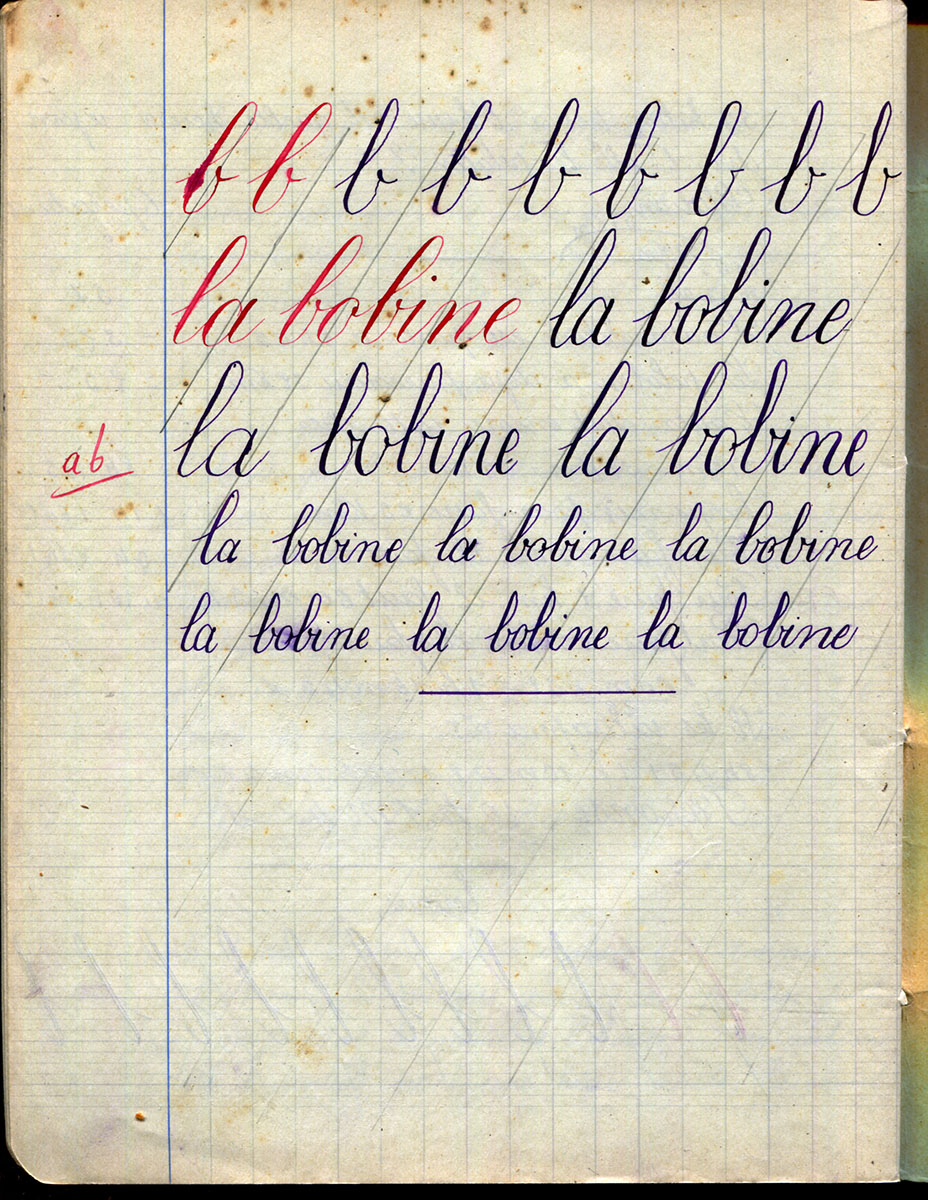 b b b b b b b b b
la bobine la bobine
la bobine la bobine
ab
la bobine la bobine la bobine
la bobine la bobine la bobine